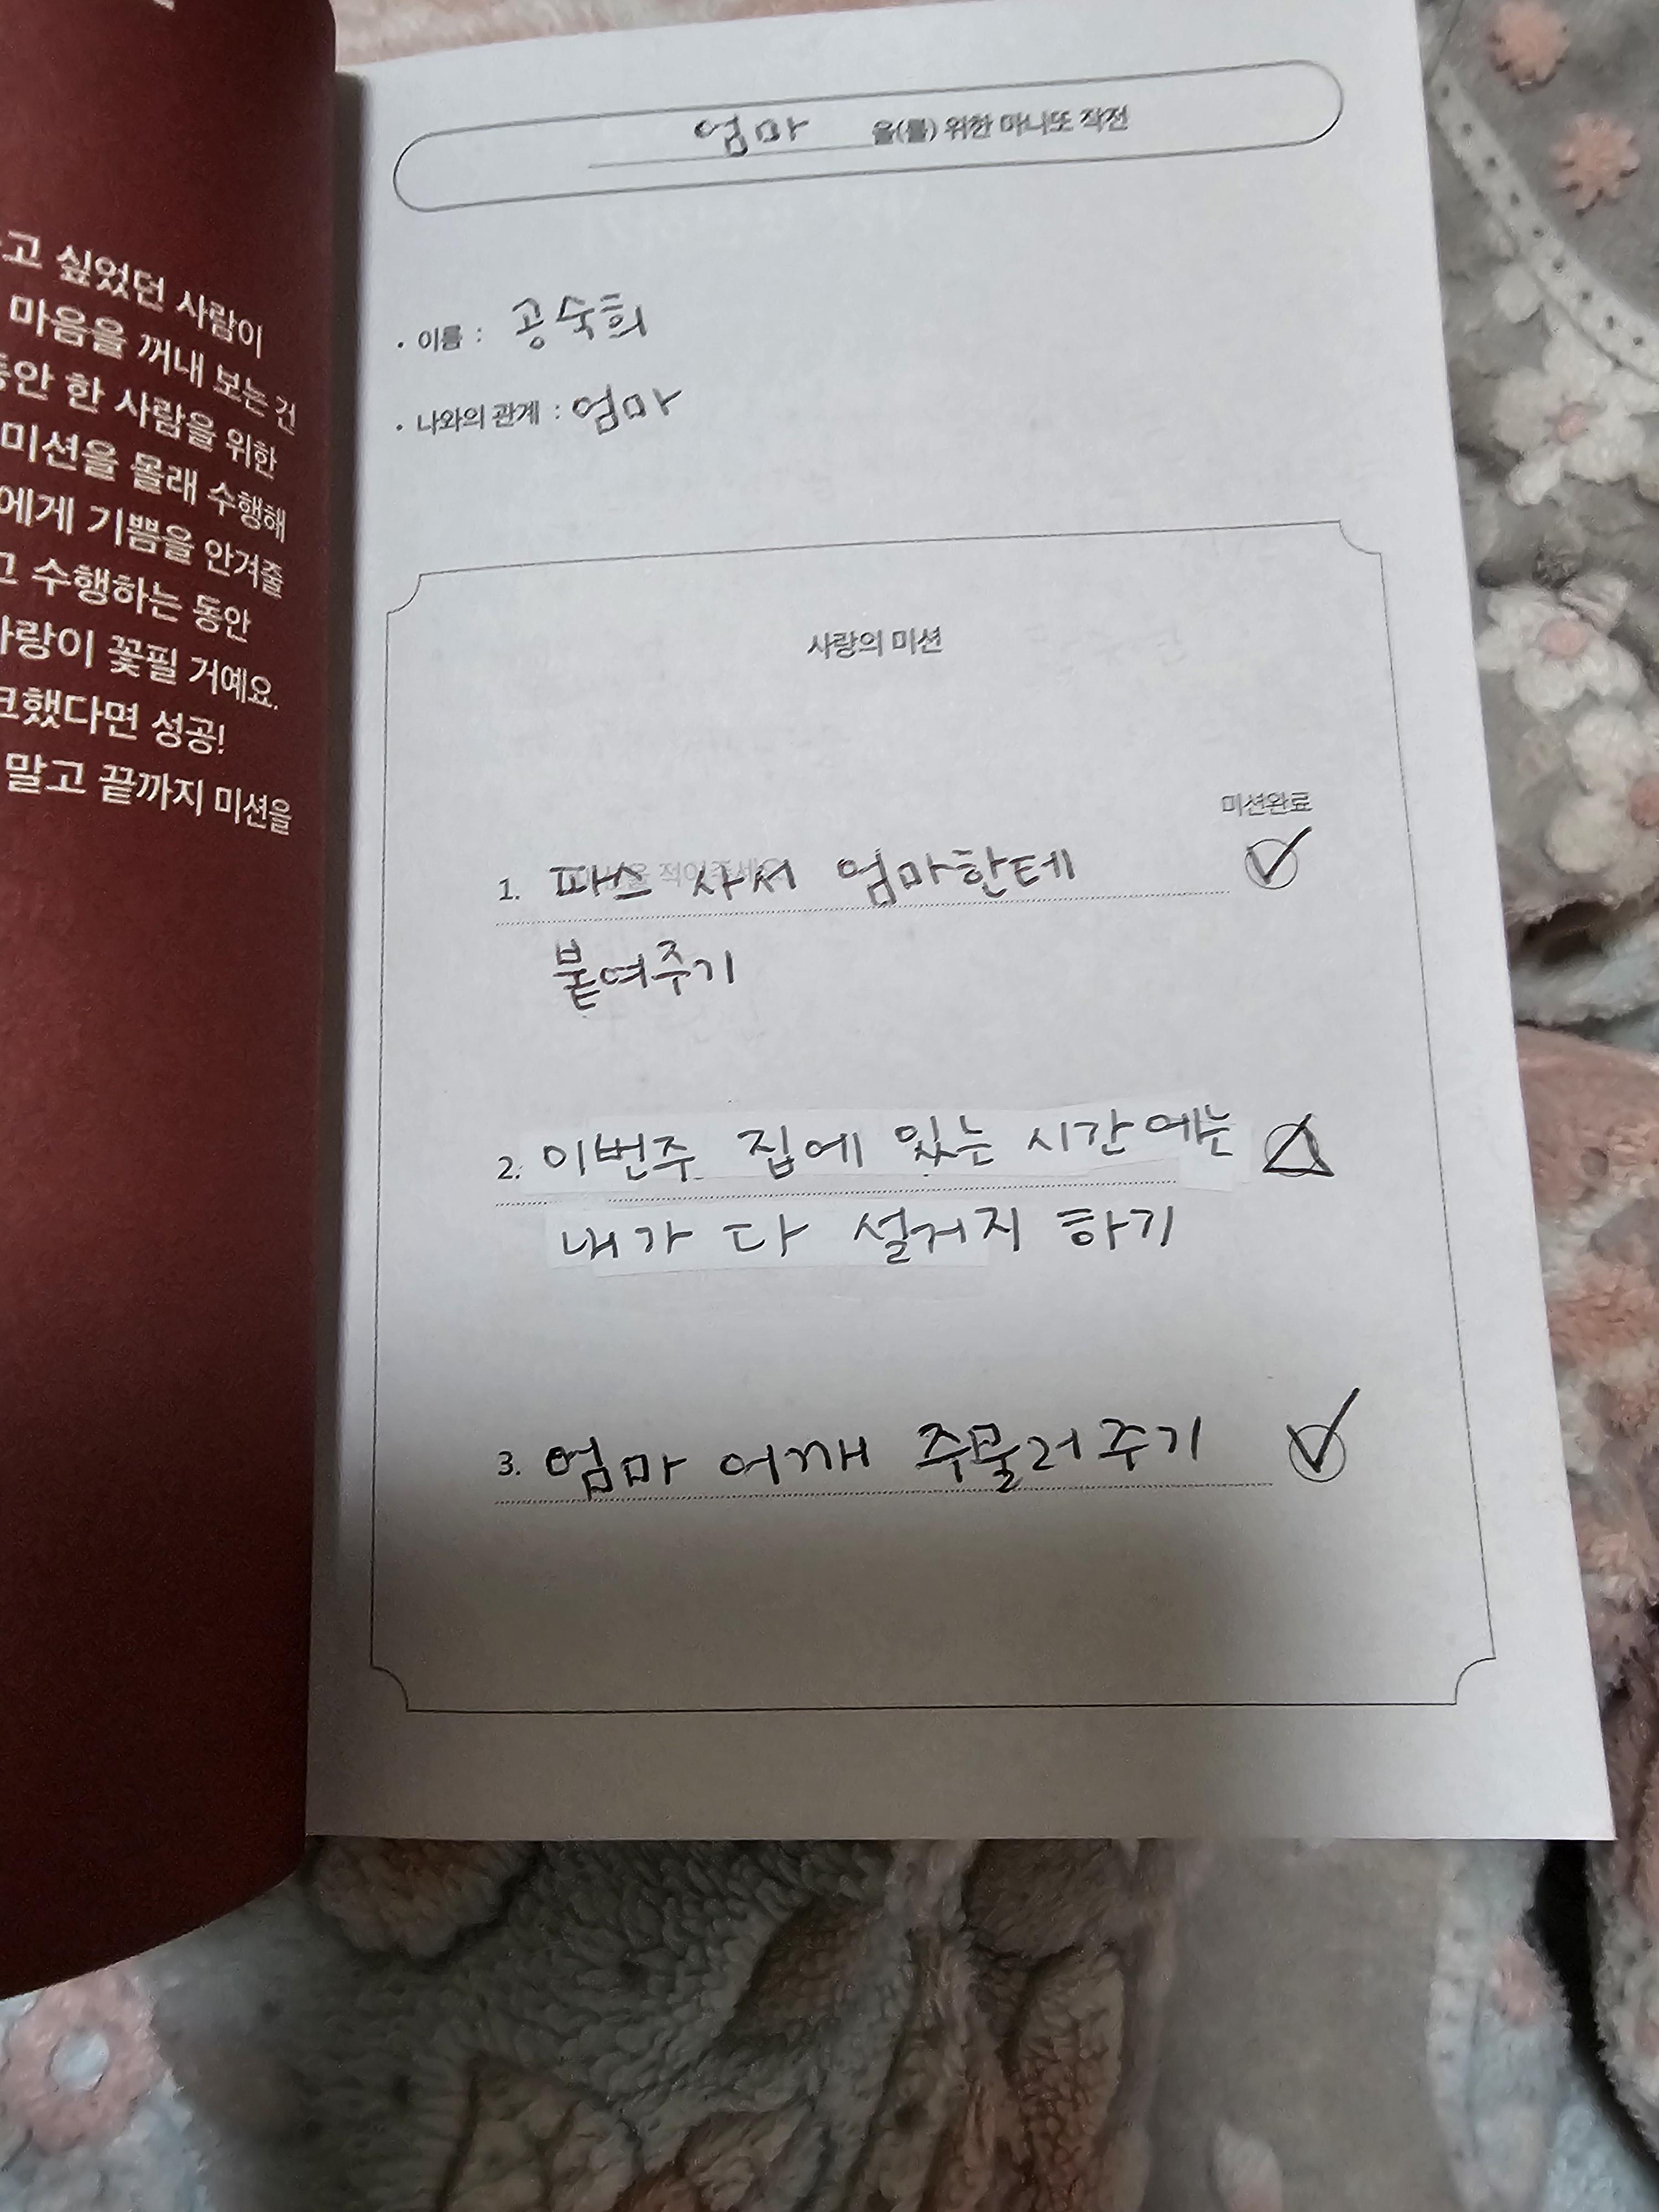 고 싶었던 사람이
마음을 꺼내 보는 건
동안 한 사람을 위한
미션을 몰래 수행해
에게 기쁨을 안겨줄
고 수행하는 동안
사랑이 꽃필 거예요.
크했다면 성공!
말고 끝까지 미션을
엄마 을(를) 위한 마니또 작전
· 이름 : 공숙희
· 나와의 관계 : 엄마
사랑의 미션
미션완료
1. 파스 사서 엄마한테
붙여주기
2. 이번주 집에 있는 시간에는
내가 다 설거지 하기
3. 엄마 어깨 주물러주기